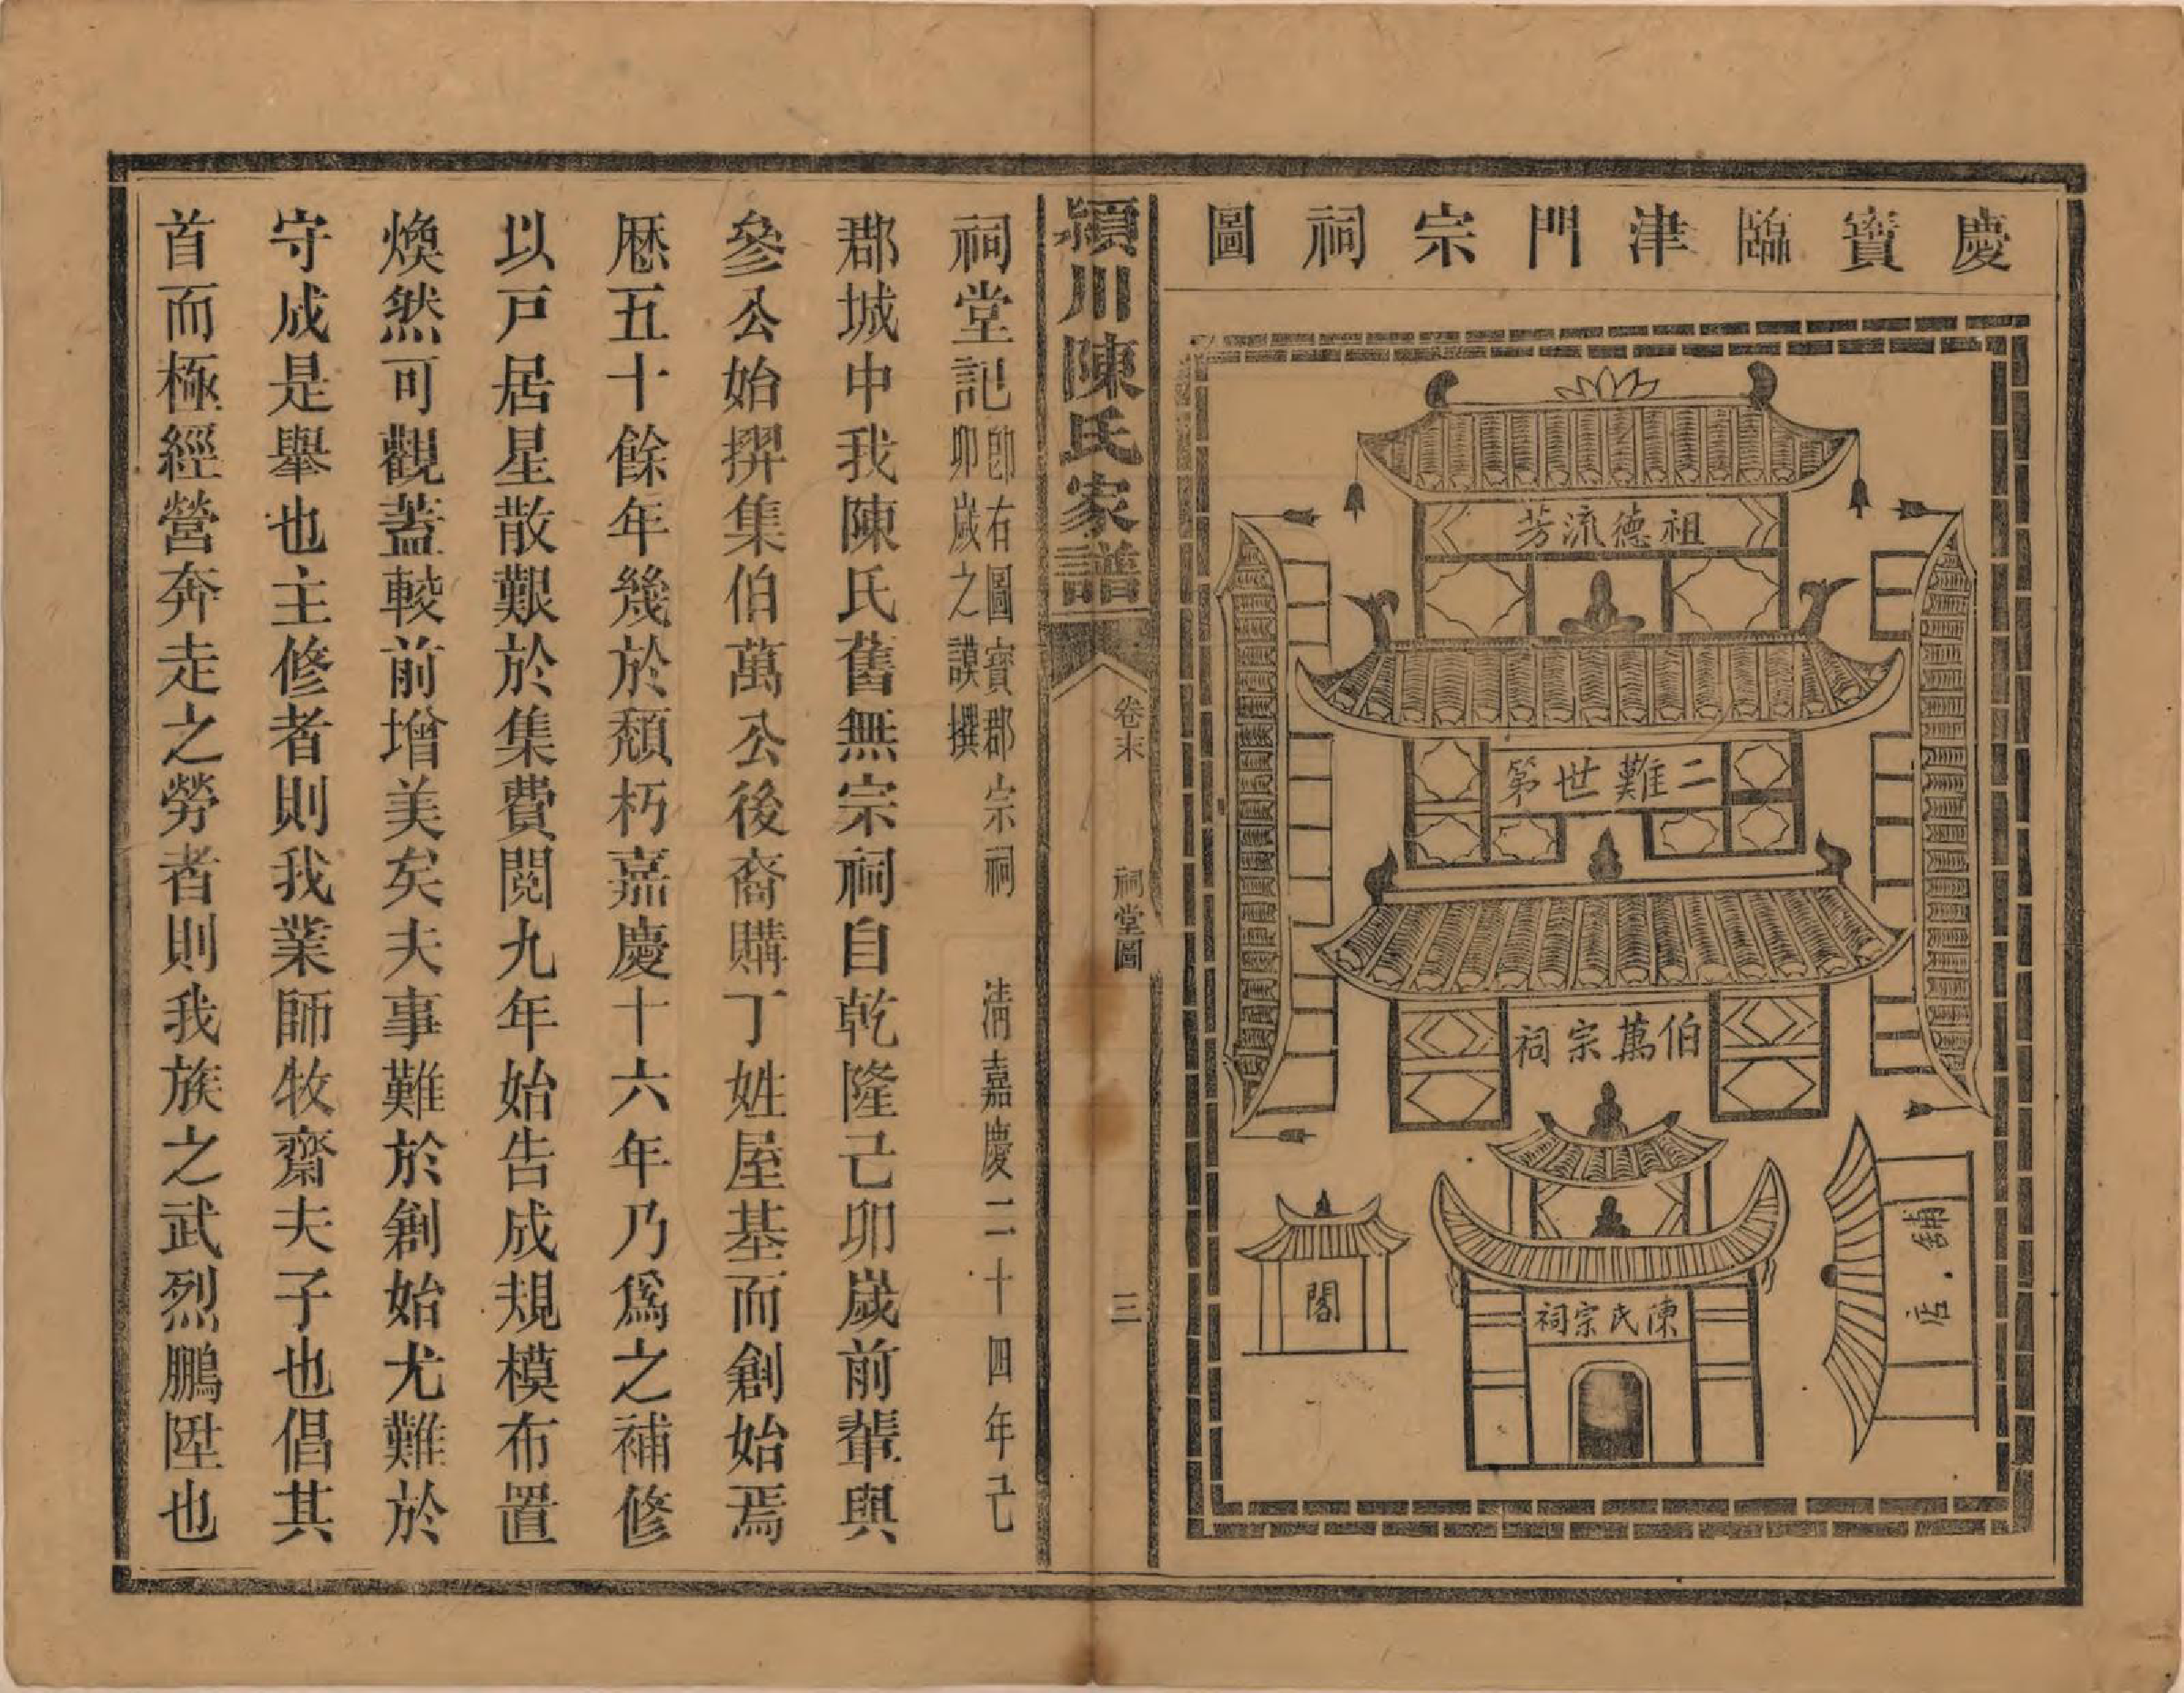 慶寳臨津門宗祠圖
祖德流芳
二難世第
伯萬宗祠
陳氏宗祠
閣
鋪店
潁川陳氏家譜
卷末
祠堂圖
三
祠堂記
卽右圖寳郡宗祠 清嘉慶二十四年己
卯嵗之謨撰
郡城中我陳氏舊無宗祠自乾隆己卯嵗前輩與
參公始搿集伯萬公後裔購丁姓屋基而創始焉
厯五十餘年幾於頽朽嘉慶十六年乃爲之補修
以戸居星散艱於集費閲九年始告成規模布置
煥然可觀蓋較前增美矣夫事難於創始尤難於
守成是舉也主修者則我業師牧齋夫子也倡其
首而極經營奔走之勞者則我族之武烈鵬陞也